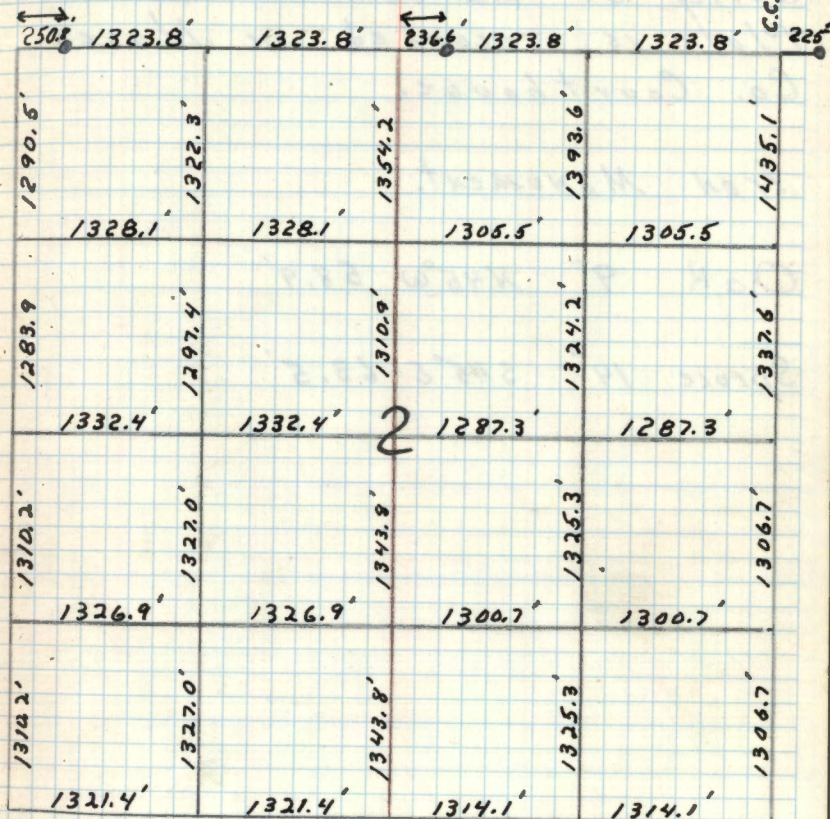 C.C.
250.8' 1323.8' 1323.8' 236.6' 1323.8' 1323.8' 225²
1290.5' 1322.3' 1354.2' 1393.6' 1435.1'
1328.1' 1328.1' 1305.5' 1305.5
1283.9 1297.4' 1310.9' 1324.2' 1337.6'
1332.4' 1332.4' 2 1287.3' 1287.3'
1310.2' 1327.0' 1343.8' 1325.3' 1306.7'
1326.9' 1326.9' 1300.7' 1300.7'
1310.2' 1327.0' 1343.8' 1325.3' 1306.7'
1321.4' 1321.4' 1314.1' 1314.1'